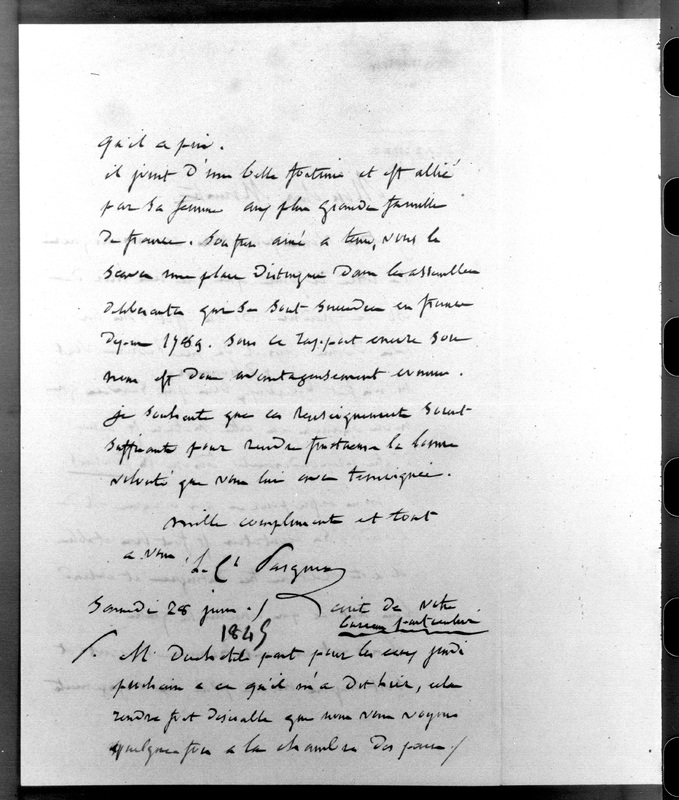 qu'il a pris.
il jouit d'une belle fortune et est allié
par sa femme aux plus grande famille
de france. Son frere ainé a tenu, vous le
savez une place distinguée dans les assemblees
deliberantes qui se sont succedées en france
depuis 1789. sous ce rapport encore son
nom est donc avantageusement connu.
je souhaite que ces renseignements soient
suffisants pour rendre fructueuse la bonne
volonté que vous lui avez temoignée.
mille compliments et tout
a vous. Le Ct Pasquier
Samedi 28 juin./ ecrit de votre
bureau particulier
1845
/. Mr Duchatel part pour les eaux jeudi
prochain a ce qu'il m'a dit hier, cela
rendra fort desirable que nous vous voyons
quelquefois a la chambre des pairs./